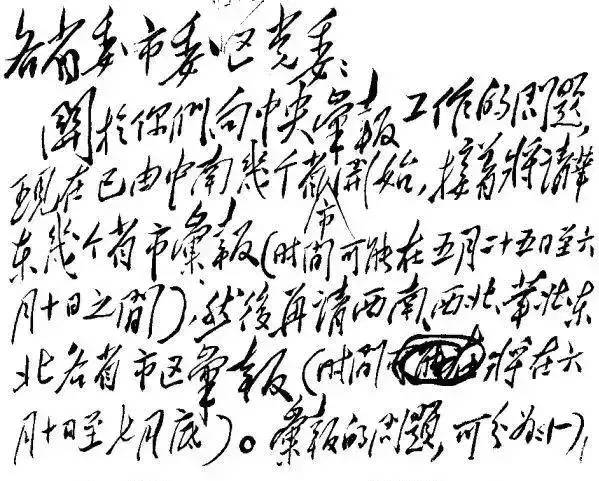 各省委市委区党委：
關於你們向中央彙報工作的問題，
现在已由中南幾个省市開始，接着將請華
东幾个省市彙報（时间可能在五月二十五日至六
月十日之間），然後再請西南、西北、華北、东
北各省市区彙報（时间將在六
月十日至七月底）。彙報的問題，可分为：㈠、